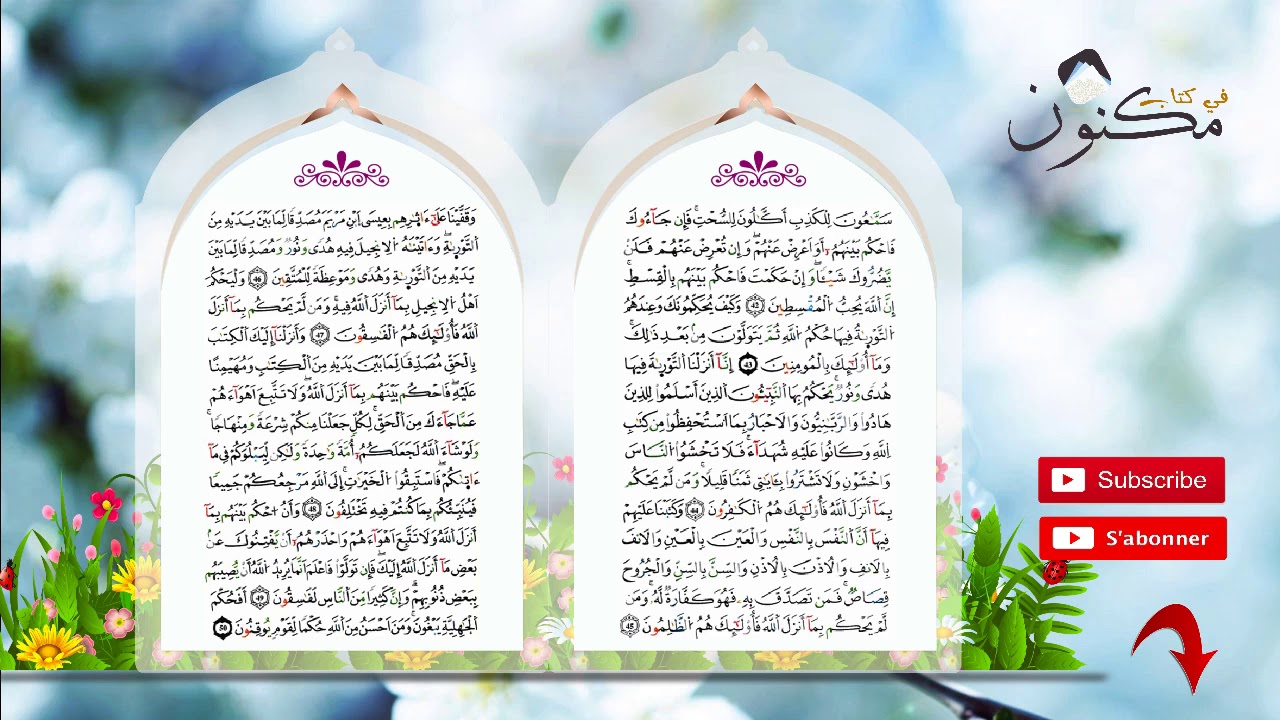 في كتاب
مكنون
سَمَّٰعُونَ لِلْكَذِبِ أَكَّٰلُونَ لِلسُّحْتِ فَإِن جَآءُوكَ
فَاحْكُم بَيْنَهُمُۥٓ أَوَ اَعْرِضْ عَنْهُمْ وَإِن تُعْرِضْ عَنْهُمْ فَلَنْ
يَّضُرُّوكَ شَيْـٔاً وَإِنْ حَكَمْتَ فَاحْكُم بَيْنَهُم بِالْقِسْطِ
إِنَّ اَللَّهَ يُحِبُّ اُلْمُقْسِطِينَ 42 وَكَيْفَ يُحَكِّمُونَكَ وَعِندَهُمُ
اُلتَّوْرَىٰةُ فِيهَا حُكْمُ اُللَّهِ ثُمَّ يَتَوَلَّوْنَ مِنۢ بَعْدِ ذَٰلِكَ
وَمَآ أُوْلَٰٓئِكَ بِالْمُومِنِينَ 43 إِنَّآ أَنزَلْنَا اَلتَّوْرَىٰةَ فِيهَا
هُدىً وَنُورٌ يَحْكُمُ بِهَا اَلنَّبِيٓـُٔونَ اَلذِينَ أَسْلَمُواْ لِلذِينَ
هَادُواْ وَالرَّبَّٰنِيُّونَ وَالَاحْبَارُ بِمَا اَسْتُحْفِظُواْ مِن كِتَٰبِ
اِللَّهِ وَكَانُواْ عَلَيْهِ شُهَدَآءَ فَلَا تَخْشَوُاْ اُلنَّاسَ
وَاخْشَوْنِ وَلَا تَشْتَرُواْ بِـَٔايَٰتِي ثَمَناً قَلِيلاً وَمَن لَّمْ يَحْكُم
بِمَآ أَنزَلَ اَللَّهُ فَأُوْلَٰٓئِكَ هُمُ اُلْكَٰفِرُونَ 44 وَكَتَبْنَا عَلَيْهِمْ
فِيهَآ أَنَّ اَلنَّفْسَ بِالنَّفْسِ وَالْعَيْنَ بِالْعَيْنِ وَالَانفَ
بِالَانفِ وَالُاذْنَ بِالُاذْنِ وَالسِّنَّ بِالسِّنِّ وَالْجُرُوحَ
قِصَاصٌ فَمَن تَصَدَّقَ بِهِۦ فَهُوَ كَفَّارَةٌ لَّهُۥ وَمَن
لَّمْ يَحْكُم بِمَآ أَنزَلَ اَللَّهُ فَأُوْلَٰٓئِكَ هُمُ اُلظَّٰلِمُونَ 45
وَقَفَّيْنَا عَلَىٰٓ ءَاثٰ۪رِهِم بِعِيسَى اَبْنِ مَرْيَمَ مُصَدِّقاً لِّمَا بَيْنَ يَدَيْهِ مِنَ
اَلتَّوْرَىٰةِ وَءَاتَيْنَٰهُ اُلِانجِيلَ فِيهِ هُدىً وَنُورٌ وَمُصَدِّقاً لِّمَا بَيْنَ
يَدَيْهِ مِنَ اَلتَّوْرَىٰةِ وَهُدىً وَمَوْعِظَةً لِّلْمُتَّقِينَ 46 وَلْيَحْكُمَ
اَهْلُ اُلِانجِيلِ بِمَآ أَنزَلَ اَللَّهُ فِيهِ وَمَن لَّمْ يَحْكُم بِمَآ أَنزَلَ
اَللَّهُ فَأُوْلَٰٓئِكَ هُمُ اُلْفَٰسِقُونَ 47 وَأَنزَلْنَآ إِلَيْكَ اَلْكِتَٰبَ
بِالْحَقِّ مُصَدِّقاً لِّمَا بَيْنَ يَدَيْهِ مِنَ اَلْكِتَٰبِ وَمُهَيْمِناً
عَلَيْهِ فَاحْكُم بَيْنَهُم بِمَآ أَنزَلَ اَللَّهُ وَلَا تَتَّبِعَ اَهْوَآءَهُمْ
عَمَّا جَآءَكَ مِنَ اَلْحَقِّ لِكُلّٖ جَعَلْنَا مِنكُمْ شِرْعَةً وَمِنْهَاجاً
وَلَوْ شَآءَ اَللَّهُ لَجَعَلَكُمُۥٓ أُمَّةً وَٰحِدَةً وَلَٰكِن لِّيَبْلُوَكُمْ فِي مَآ
ءَاتَىٰكُمْ فَاسْتَبِقُواْ اُلْخَيْرَٰتِ إِلَى اَللَّهِ مَرْجِعُكُمْ جَمِيعاً
فَيُنَبِّئُكُم بِمَا كُنتُمْ فِيهِ تَخْتَلِفُونَ 48 وَأَنُ اُحْكُم بَيْنَهُم بِمَآ
أَنزَلَ اَللَّهُ وَلَا تَتَّبِعَ اَهْوَآءَهُمْ وَاحْذَرْهُمُۥٓ أَنْ يَّفْتِنُوكَ عَنۢ
بَعْضِ مَآ أَنزَلَ اَللَّهُ إِلَيْكَ فَإِن تَوَلَّوْاْ فَاعْلَمَ اَنَّمَا يُرِيدُ اُللَّهُ أَنْ يُّصِيبَهُم
بِبَعْضِ ذُنُوبِهِمْ وَإِنَّ كَثِيراً مِّنَ اَلنَّاسِ لَفَٰسِقُونَ 49 أَفَحُكْمَ
اَلْجَٰهِلِيَّةِ يَبْغُونَ وَمَنَ اَحْسَنُ مِنَ اَللَّهِ حُكْماً لِّقَوْمٖ يُوقِنُونَ 50
Subscribe
S'abonner